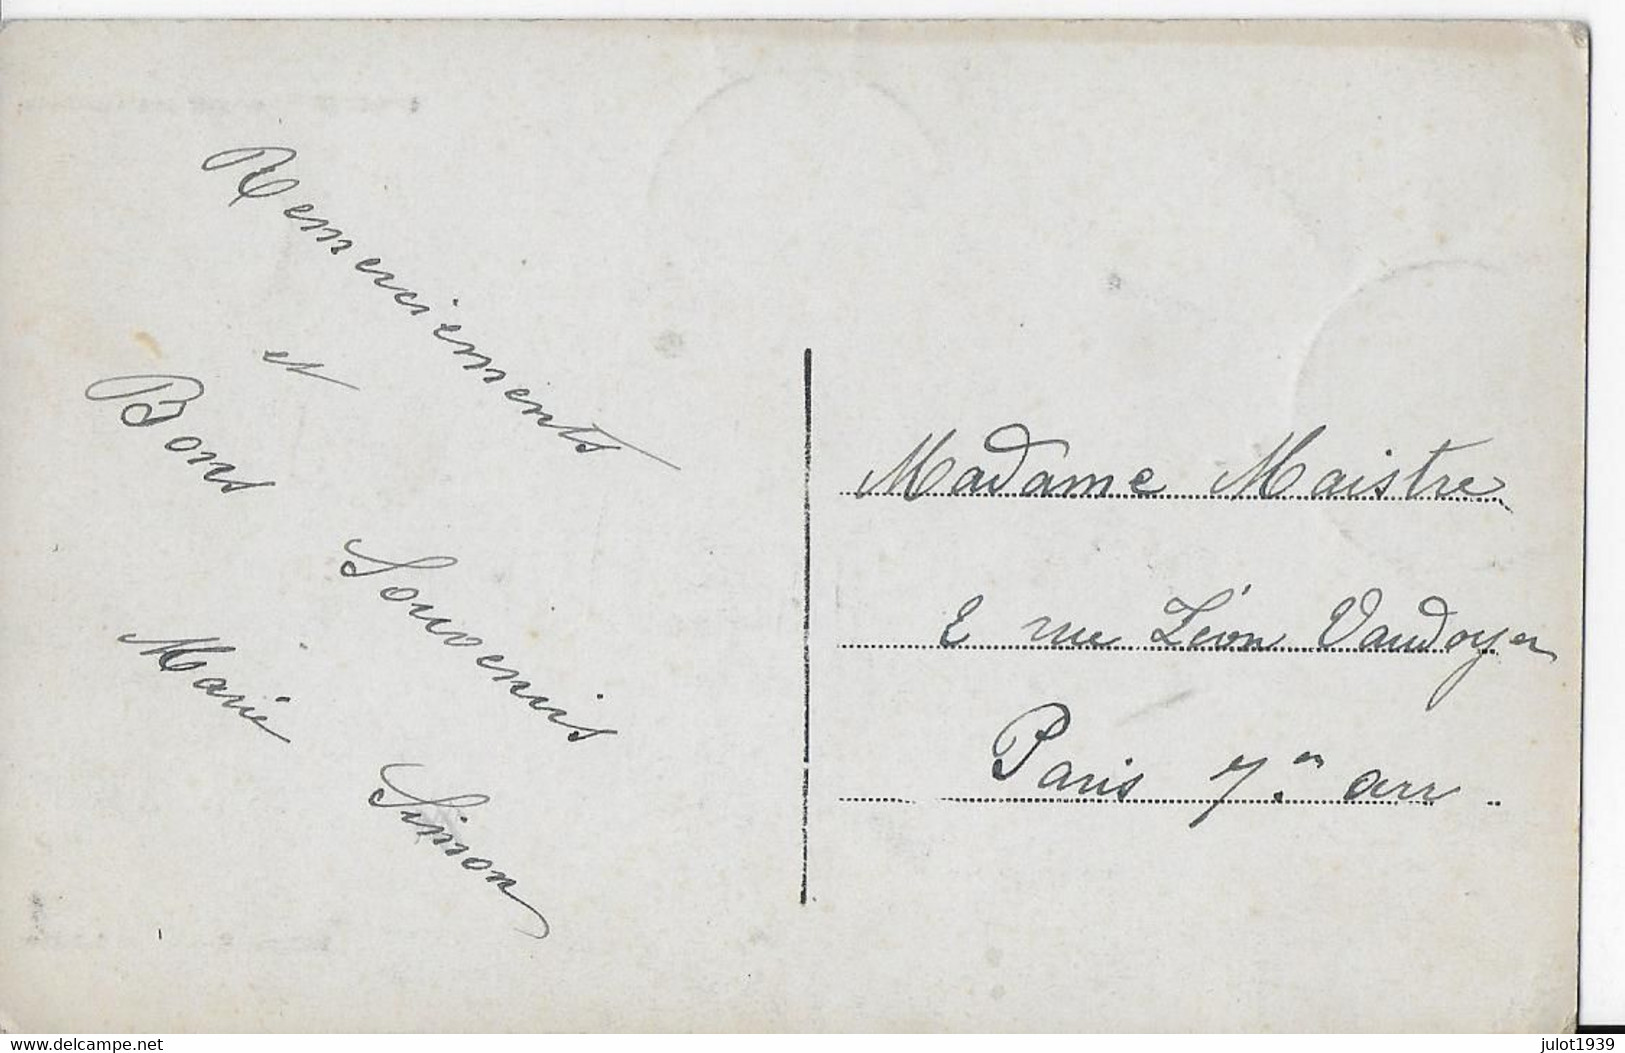 Remerciements
et
Bons Souvenirs
Marie Simon
Madame Maistre
2 rue Léon Vaudoyer
Paris 7.e arr
www.delcampe.net
julot1939